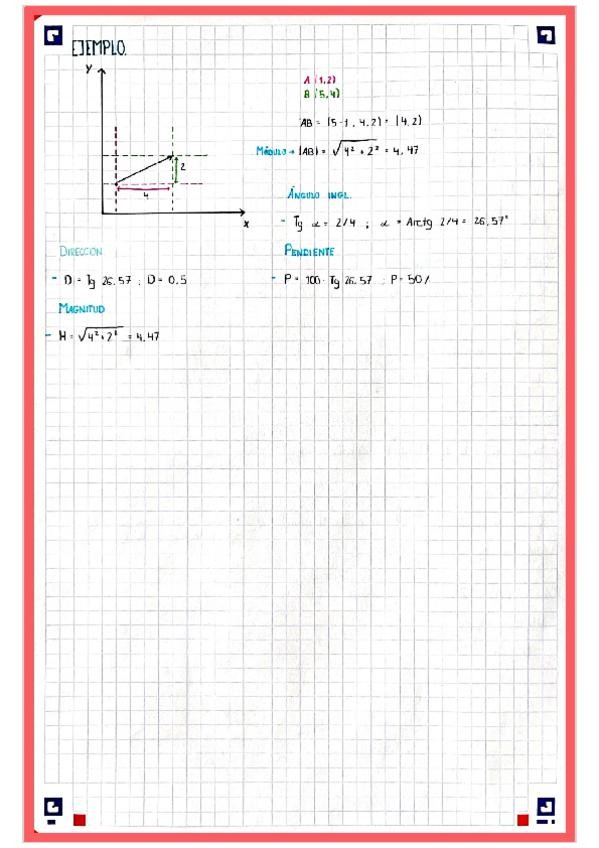 EJEMPLO.
Y
2
4
X
A (1,2)
B (5,4)
AB = (5-1, 4,2) = (4,2)
Módulo → |AB| = √4² + 2² = 4,47
Ángulo incl.
- Tg α = 2/4 ; α = Arctg 2/4 = 26,57°
Dirección
- D = Tg 26,57 ; D = 0,5
Pendiente
- P = 100 · Tg 26,57 ; P = 50 /
Magnitud
- M = √4² + 2² = 4,47